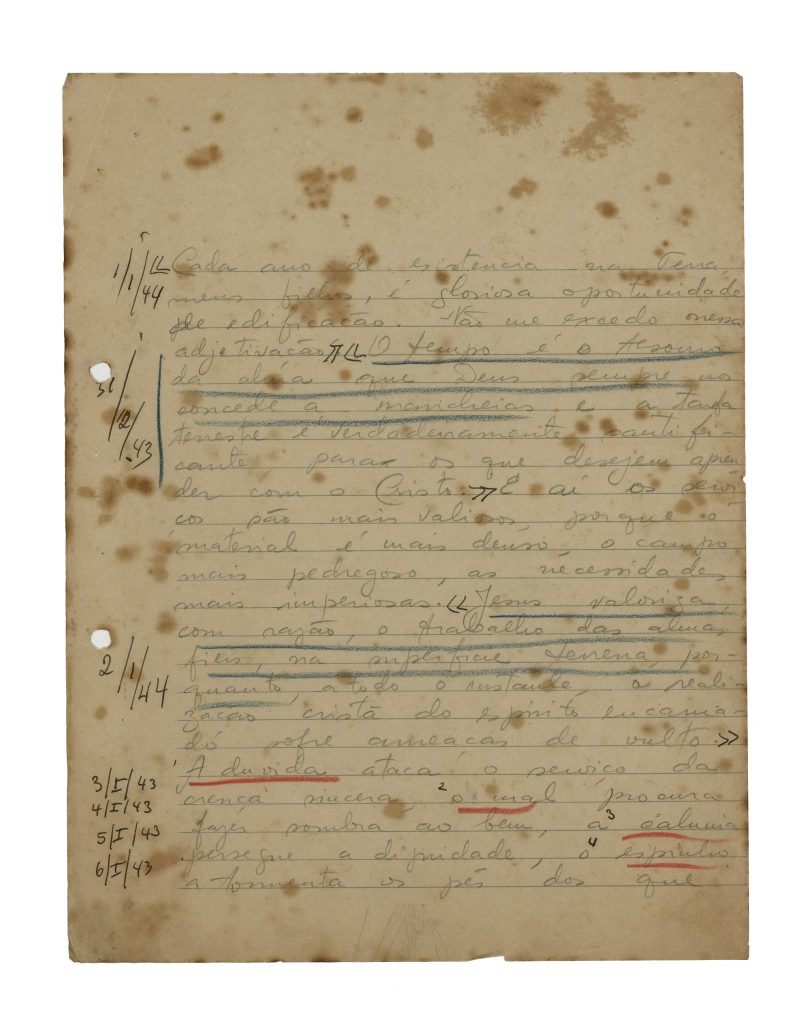 1/1/44 « Cada ano de existencia na Terra,
meus filhos, é gloriosa oportunidade
de edificação. Não me excedo nessa
adjetivação.» « O tempo é o tesouro
da alma que Deus sempre nos
31/12/43
concede a mancheias e a tarefa
terrestre é verdadeiramente santifi-
cante, para os que desejem apren
der com o Cristo.» E aí os servi
ços são mais valiosos, porque o
material é mais denso, o campo
mais pedregoso, as necessidades
mais imperiosas. « Jesus valoriza,
com razão, o trabalho das almas
2/1/44
fieis, na superficie terrena, por-
quanto, a todo o instante, a reali-
zação cristã do espirito encarna-
do sofre ameaças de vulto.»
3/I/43 A duvida ataca o serviço da
4/I/43 crença sincera, 2 o mal procura
5/I/43 fazer sombra ao bem, a 3 calunia
6/I/43 persegue a dignidade, 4 o espinho
atormenta os pés dos que